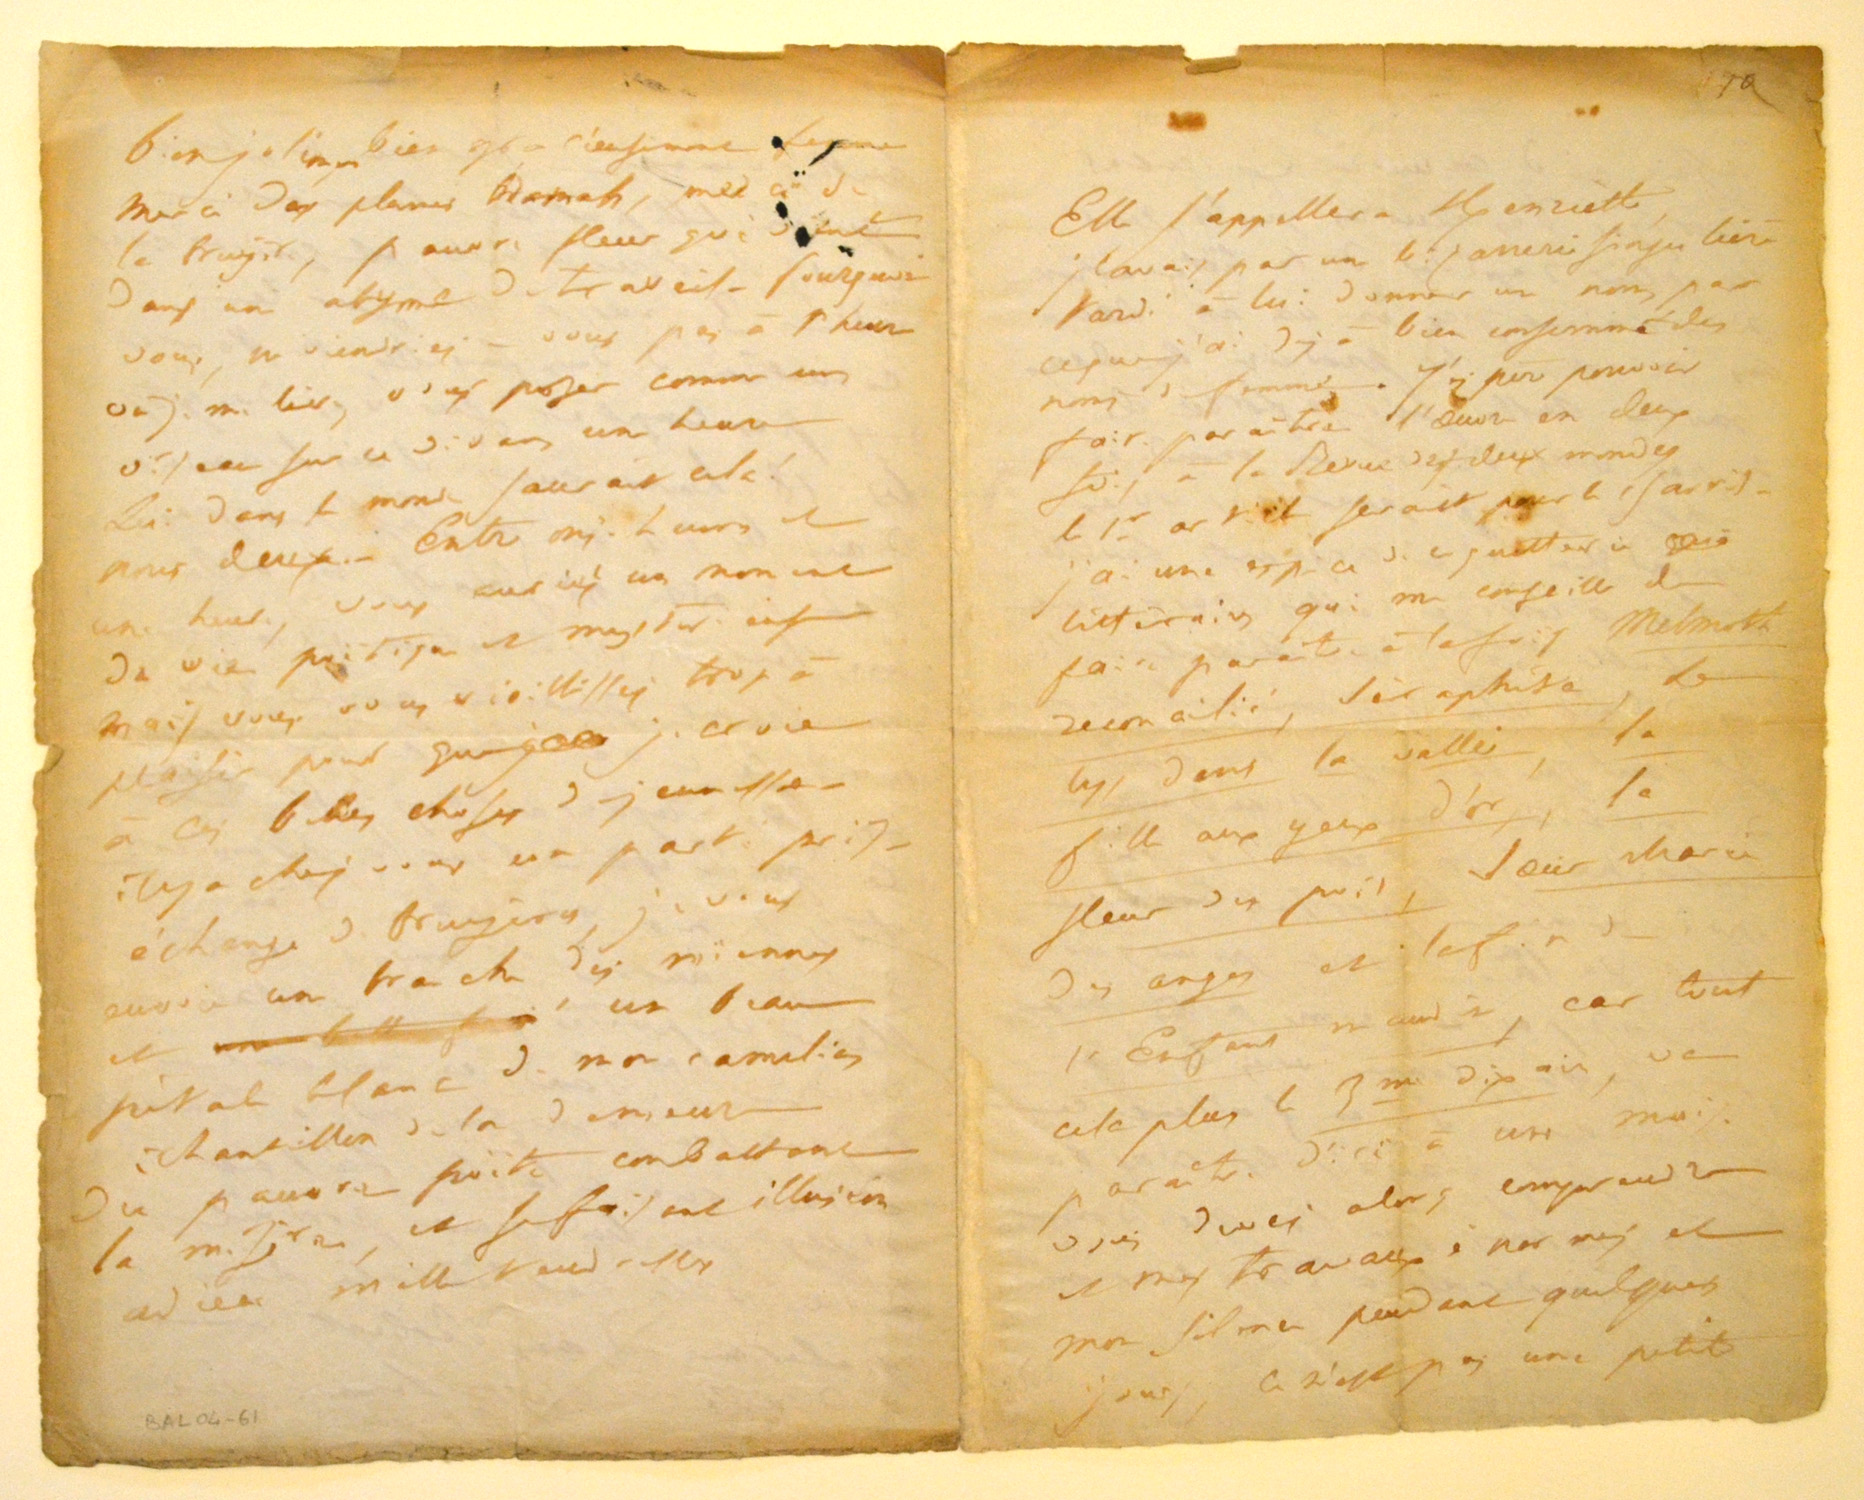 bien jolim[ent] bien gracieusement
merci des plumes Bramah, merci de
la bruyère, pauvre fleur qui vient
dans un abyme de travail. Pourquoi
vous, ne viendriez-vous pas à l'heure
où je me lève, vous poser comme un
oiseau sur ce divan une heure
Qui dans le monde saurait cela!
nous deux. Entre onze heures et
une heure, vous auriez un moment
de vie poétique et mystérieuse
mais vous vous vieillissez trop à
plaisir pour que je croie
à ces belles choses de jeunesse
il y a chez vous un parti pris
échange de bruyères, je vous
envoie une branche des miennes
et un beau
pétale blanc de mon camélia
échantillon de la demeure
du pauvre poète combattant
la misère, et se faisant illusion
adieu mille tendresses
BAL 04-61
Elle s'appellera Henriette,
j'avais par une bizarrerie singulière
tardé à lui donner un nom, par
ce que j'ai déjà bien consommé des
noms de femmes. J'espère pouvoir
faire paraître l'œuvre en deux
fois, à la Revue des deux mondes
le 1er article serait pour le
j'ai une espèce de coquetterie
littéraire qui me conseille de
faire paraître à la fois Melmoth
réconcilié, Séraphita, le
lys dans la vallée, la
fille aux yeux d'or, la
fleur des pois, Sœur Marie
des anges et la fin de
l'Enfant maudit, car tout
cela plus le 3me dixain, va
paraître d'ici à un mois.
vous devez alors comprendre
et mes travaux énormes et
mon silence pendant quelques
jours, ce n'est pas une petite